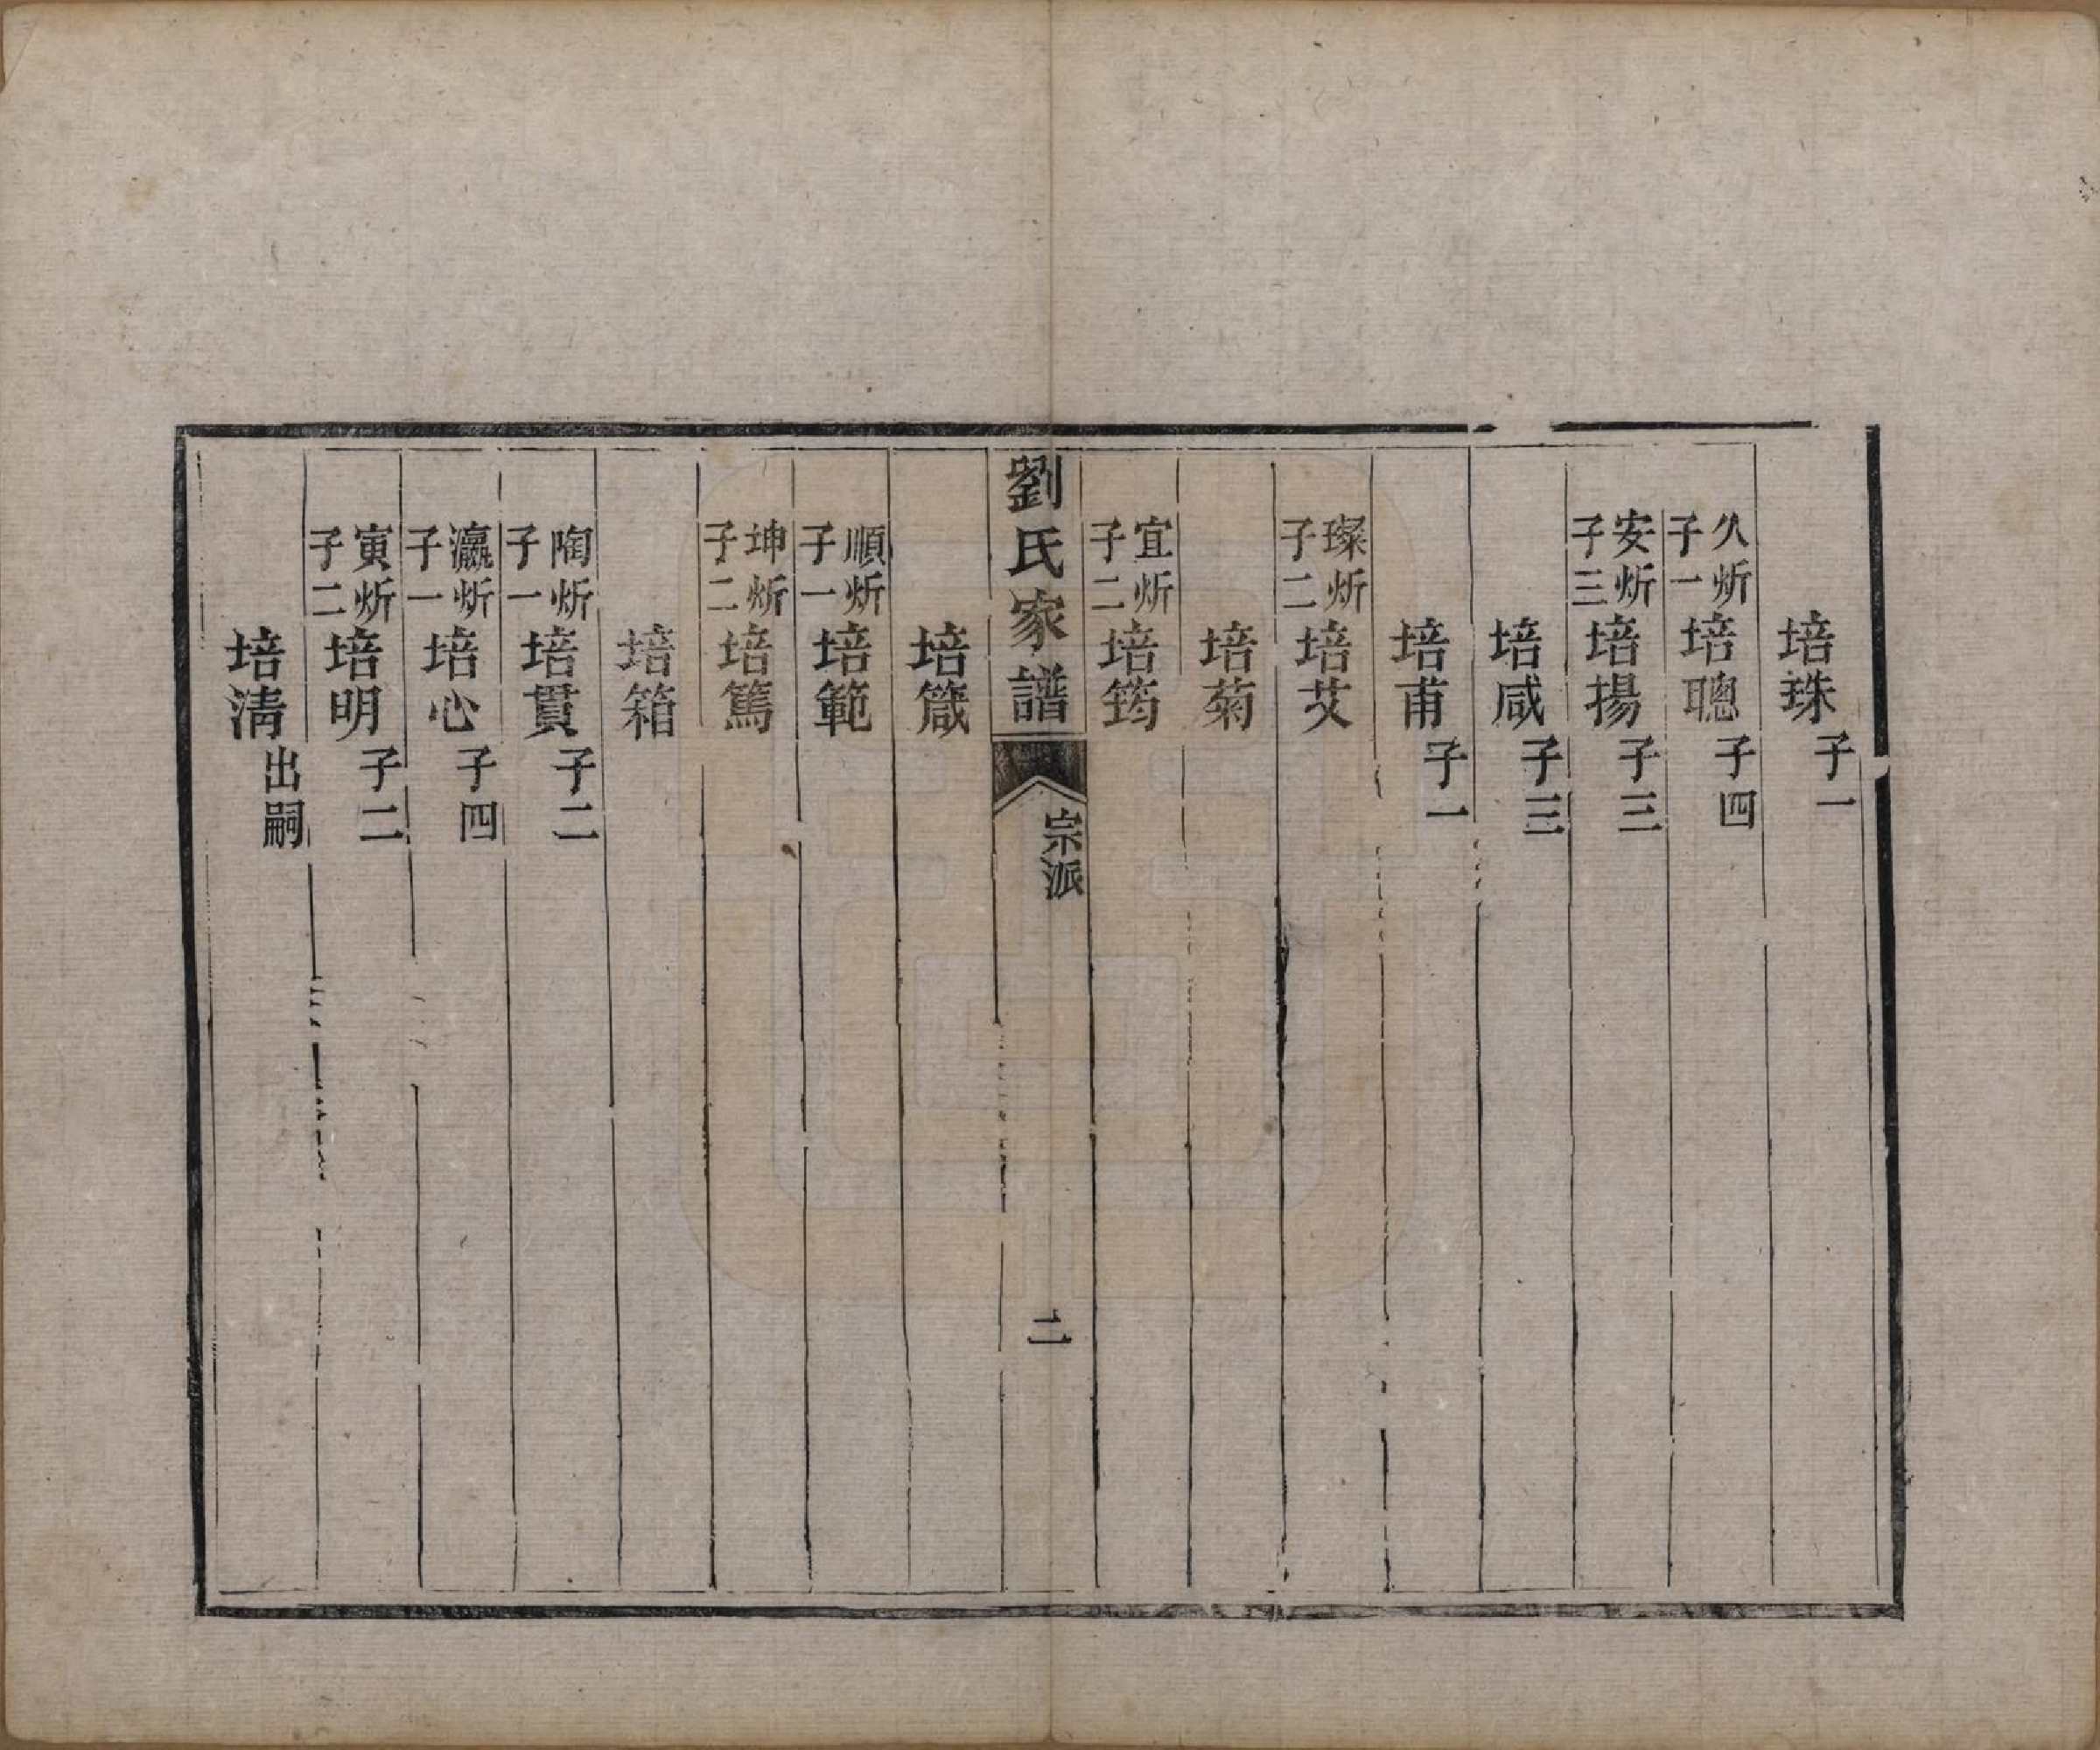 培珠 子一
久炘 子一 培聰 子四
安炘 子三 培揚 子三
培咸 子三
培甫 子一
璨炘 子二 培艾
培菊
宜炘 子二 培筠
劉氏家譜 宗派 二
培箴
順炘 子一 培範
坤炘 子二 培篤
培箱
陶炘 子一 培貫 子二
瀛炘 子一 培心 子四
寅炘 子二 培明 子二
培淸 出嗣